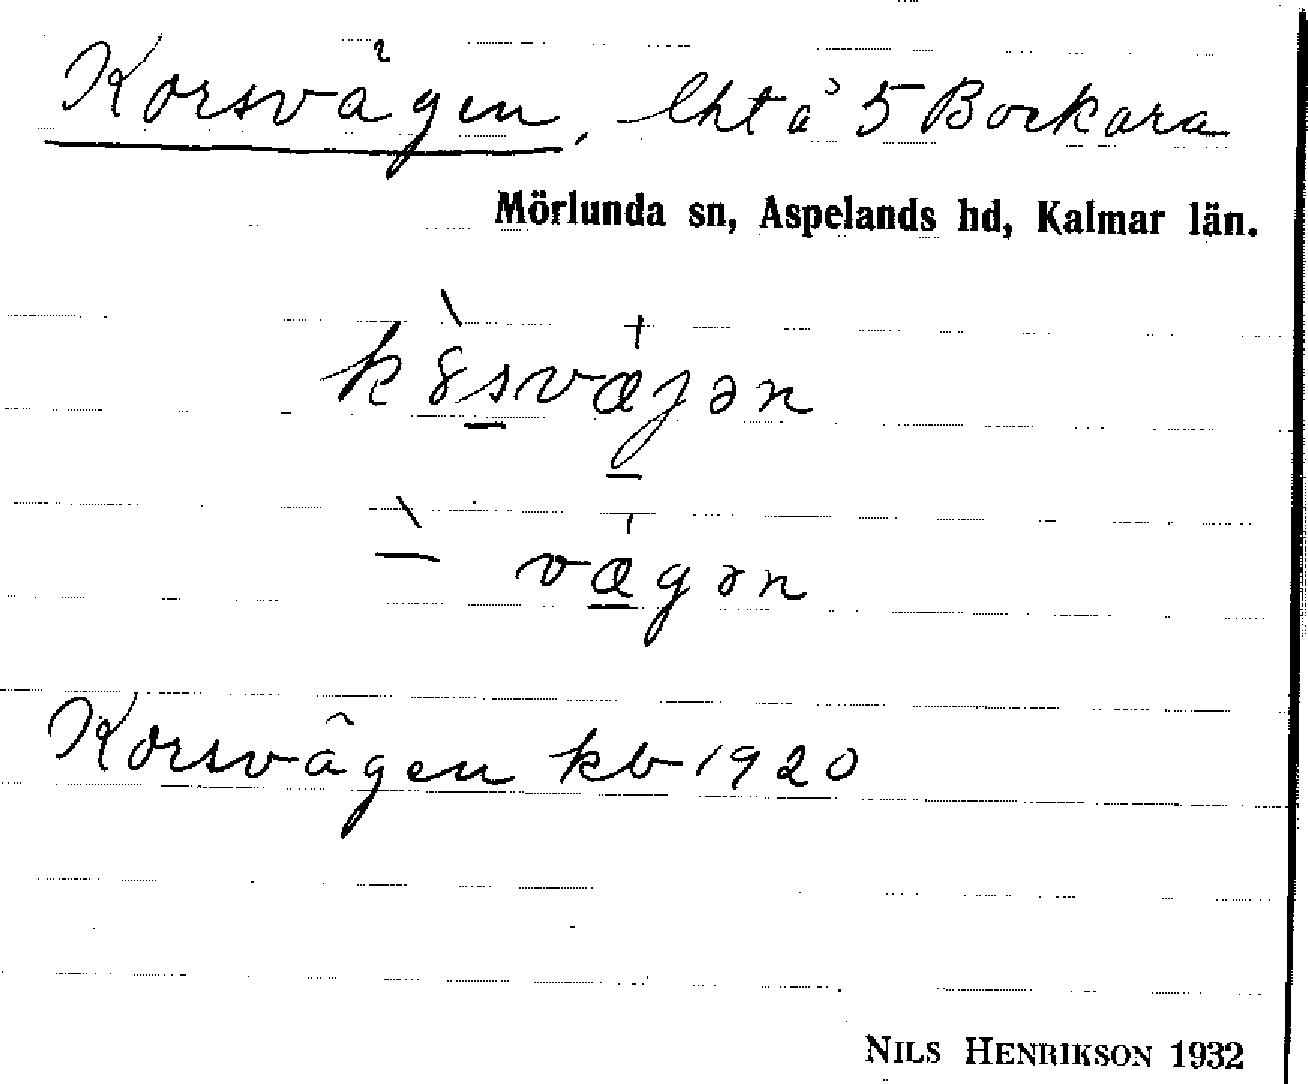 Korsvägen, lht å 5 Bockara
Mörlunda sn, Aspelands hd, Kalmar län.
kȣsvæjən
— vægən
Korsvägen kb 1920
NILS HENRIKSON 1932